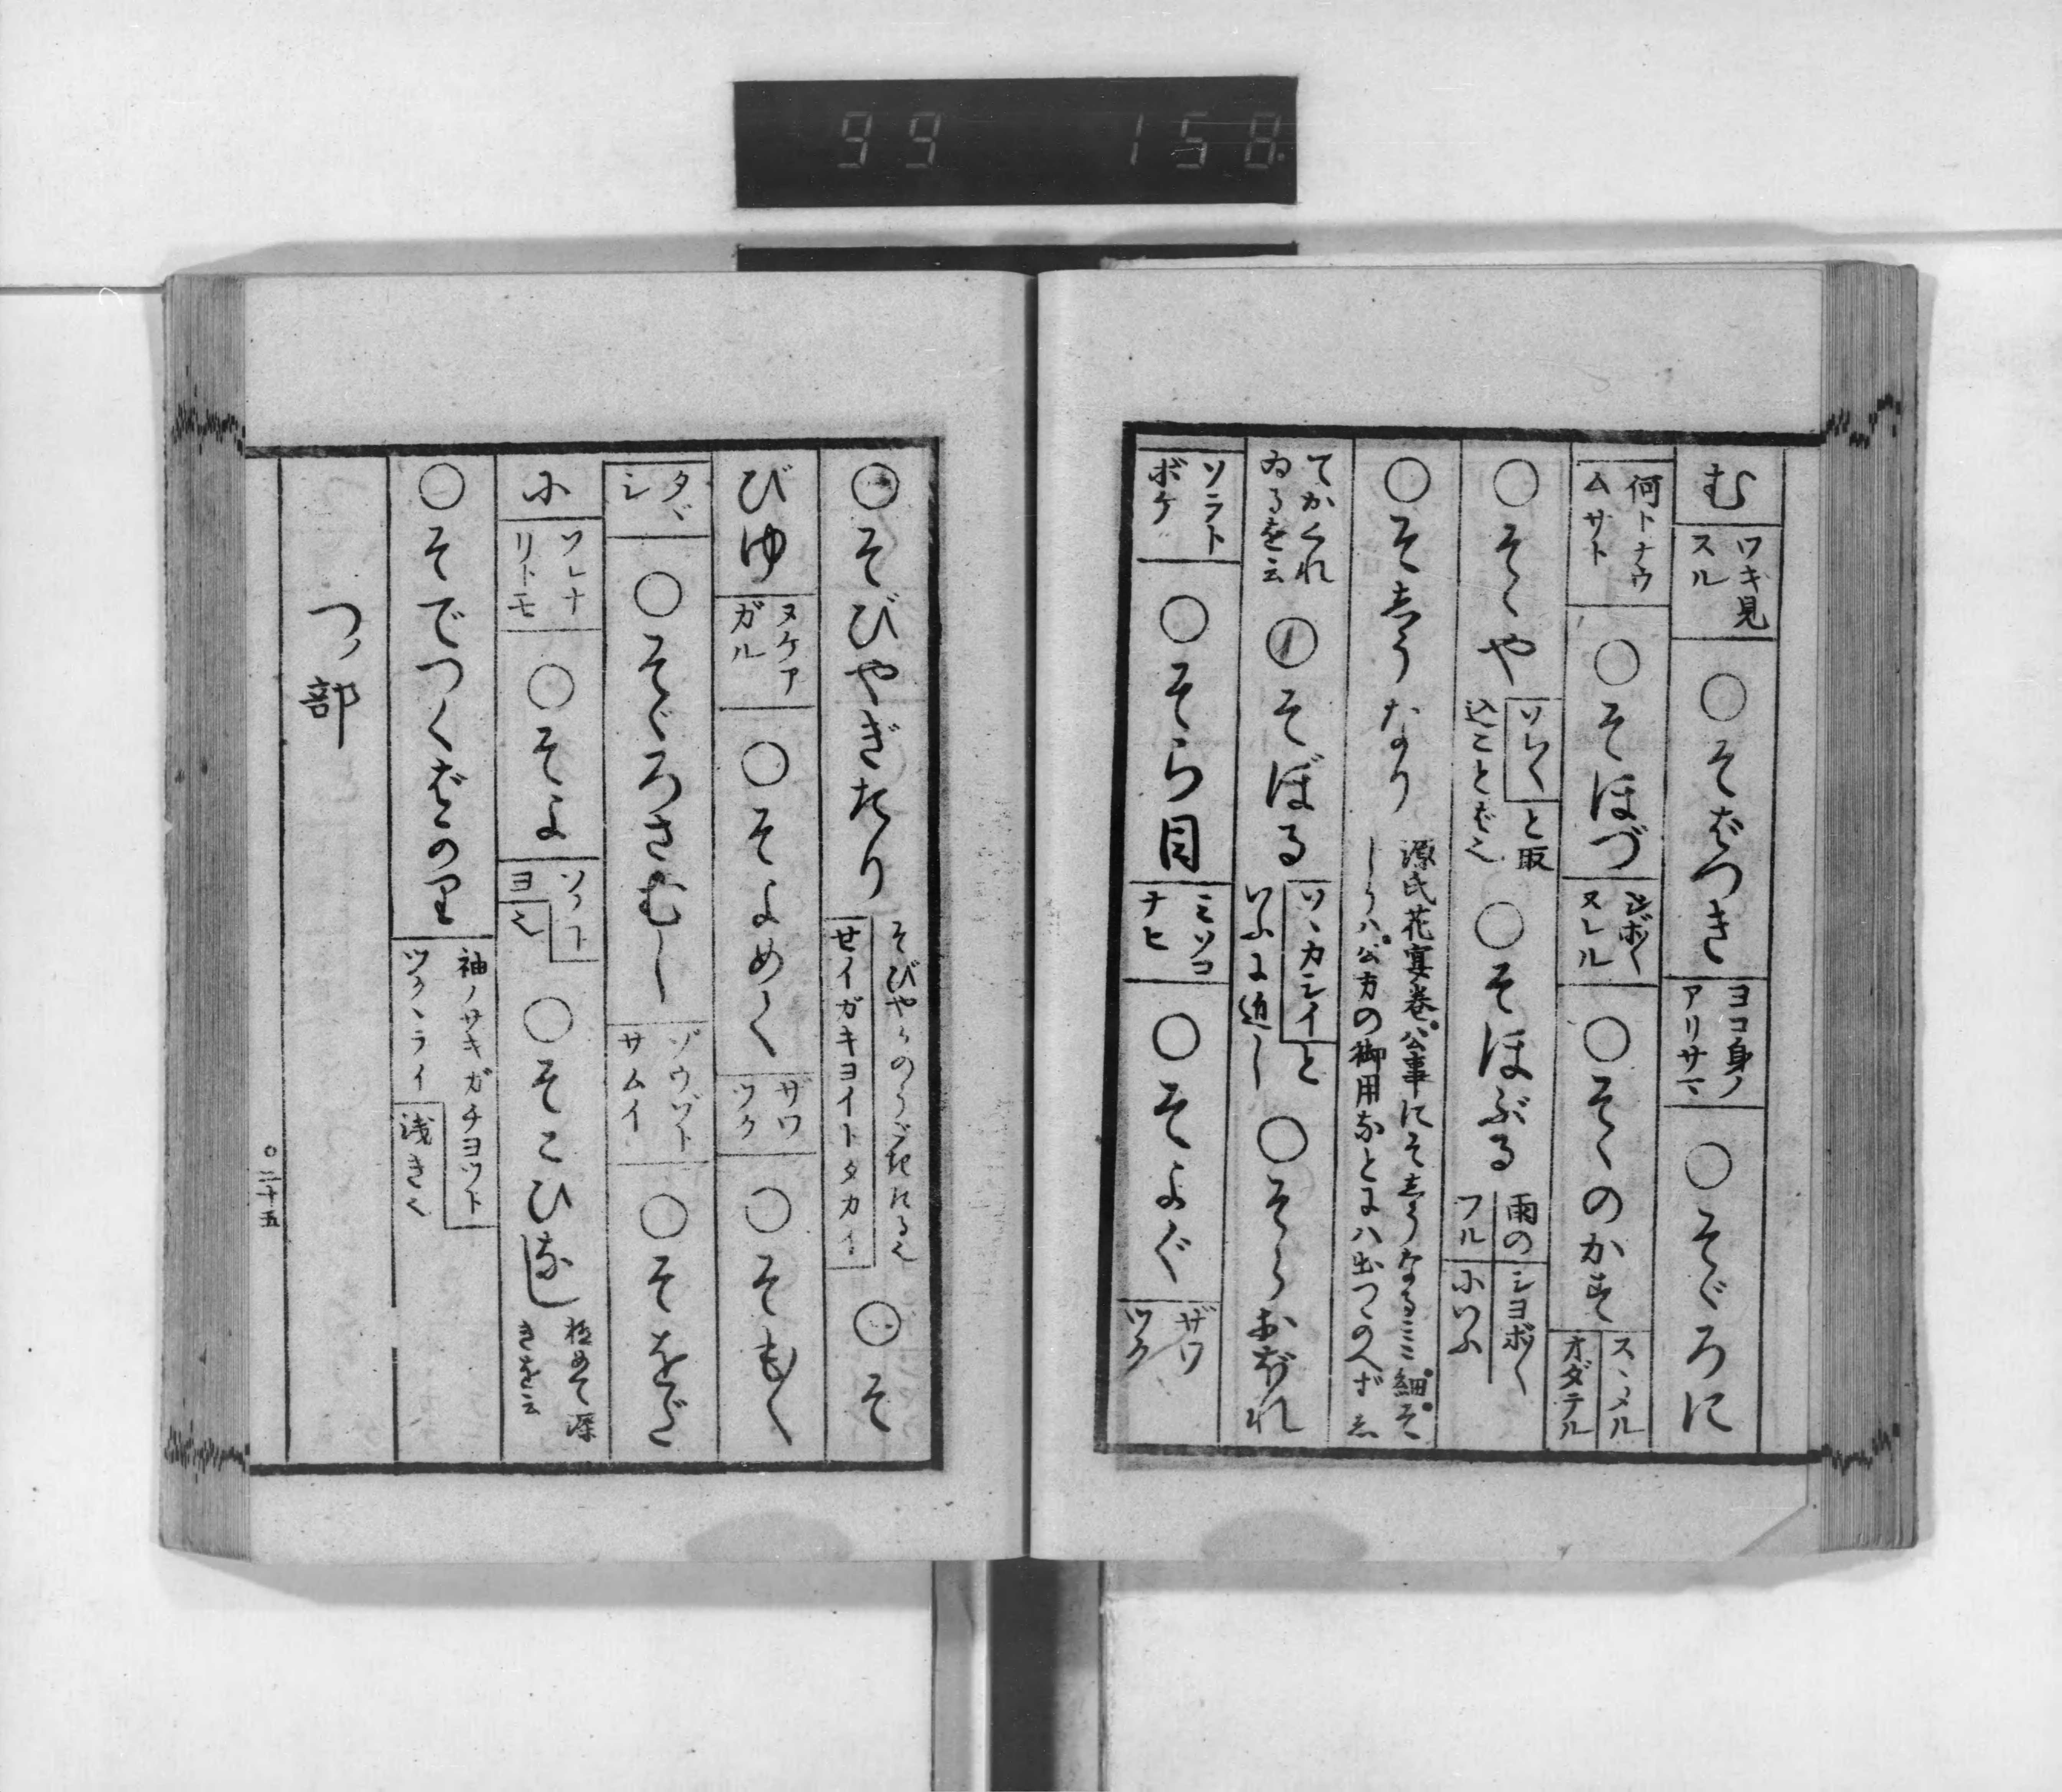 99 158
む ワキ見スル ○そばつき ヨコ身ノアリサマ ○そゞろに
何トナウムサト ○そほづ シボ〱ヌレル ○そゝのかす スヽメルオダテル
○そゝや ソレ〱と取込ことば也 ○そほぶる 雨のシヨボ〱フルにいふ
○そしうなり 源氏花宴巻公事にそしうなる 細そしうハ公方の御用などにハ出つかへず
てかくれゐるを云 ○そぼる ソヽカシイといふに通し ○そらおぼれ
ソラトボケ ○そら目 ミソコナヒ ○そよぐ ザワツク
○そびやぎたり せイガキヨイトタカイ ○そ
びゆ ヌケアガル ○そよめく ザワツク ○そもく
タヾシ ○そゞろさむし ゾウゾトサムイ ○そをだ
に ソレナリトモ ○そよ ソウヨ也 ○そこひなし 極めて深きを云
○そでつくばかり 袖ノサキガチヨツトツクヽライ 浅き也
つノ部
二十五